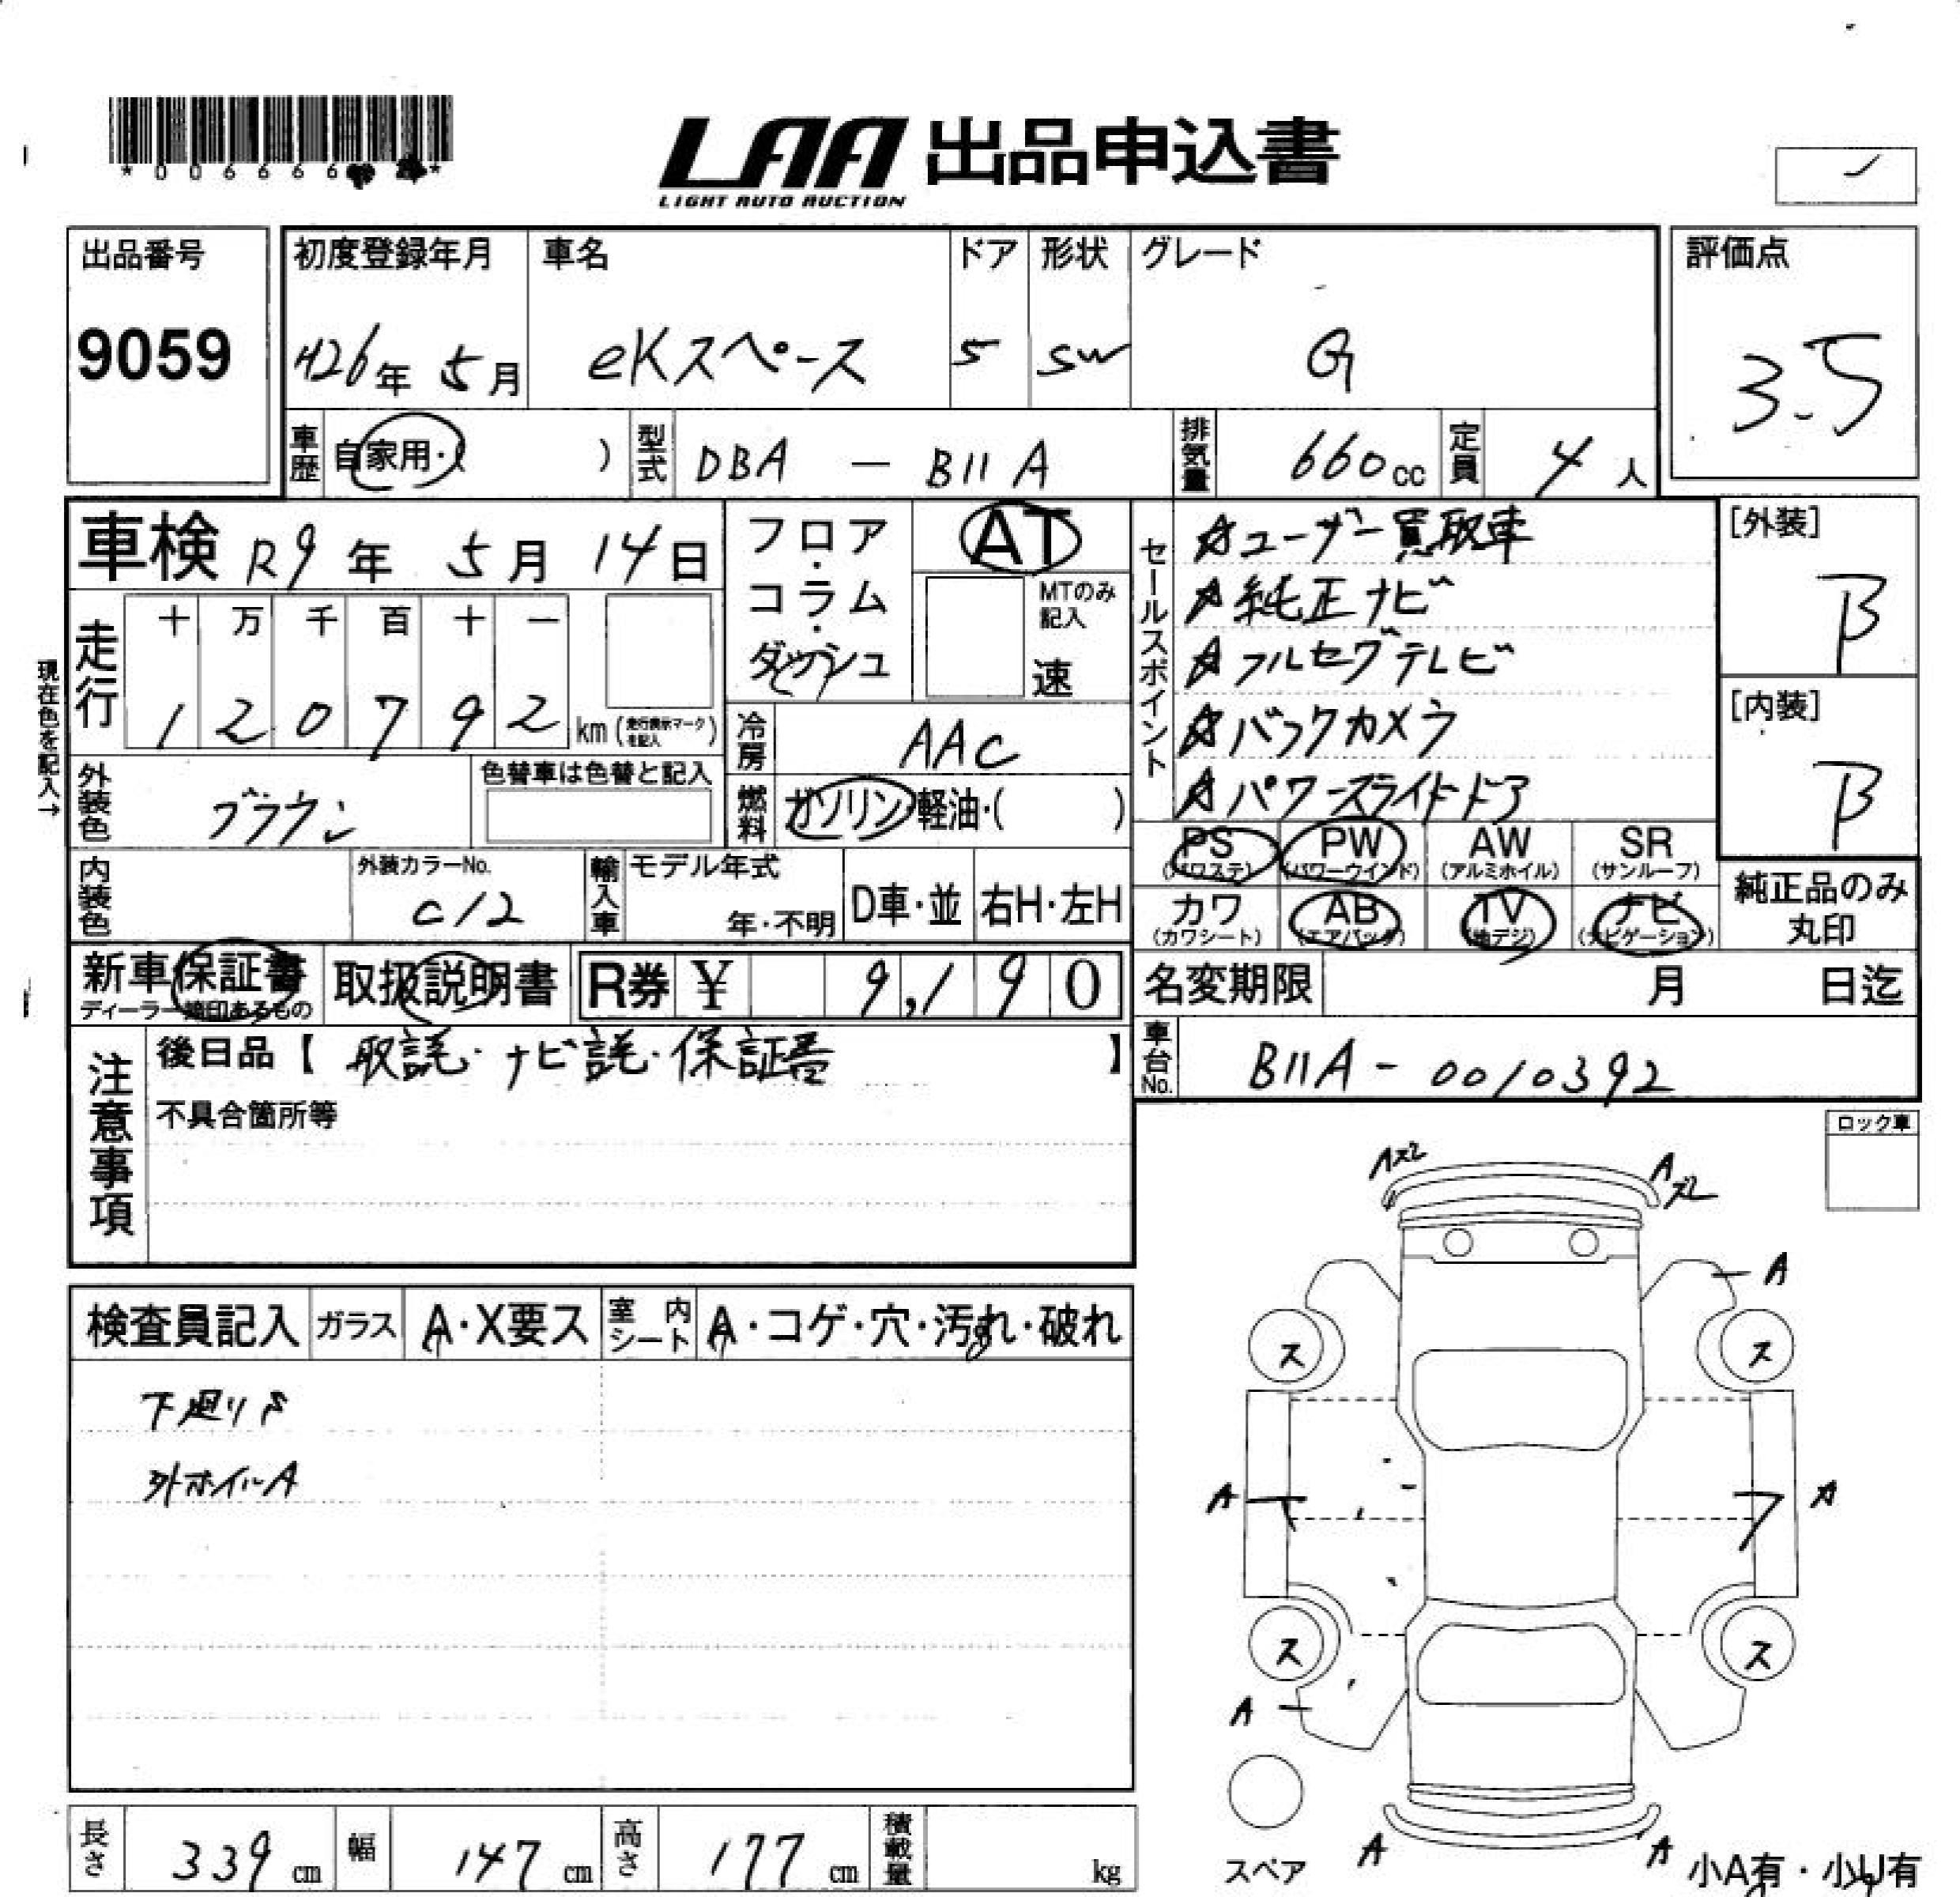 *006666
LAA 出品申込書
LIGHT AUTO AUCTION
出品番号
9059
初度登録年月
H26年 5月
車名
eKスペース
ドア
5
形状
SW
グレード
G
評価点
3.5
車歴 自家用・( )
型式 DBA － B11A
排気量 660cc
定員 4人
車検 R9年 5月 14日
フロア・コラム・ダッシュ
AT
MTのみ記入
速
セールスポイント
☆ユーザー買取車
☆純正ナビ
☆フルセグテレビ
☆バックカメラ
☆パワースライドドア
[外装]
B
[内装]
B
現在色を記入→
走行
十 万 千 百 十 一
1 2 0 7 9 2 km (走行表示マークを記入)
冷房 AAC
外装色 ブラウン
色替車は色替と記入
燃料 ガソリン・軽油・( )
PS (パワステ) PW (パワーウインド) AW (アルミホイル) SR (サンルーフ)
カワ (カワシート) AB (エアバック) TV (地デジ) ナビ (ナビゲーション)
純正品のみ丸印
内装色
外装カラーNo.
C12
輸入車
モデル年式
年・不明
D車・並
右H・左H
新車保証書
ディーラー捺印あるもの
取扱説明書
R券 ¥ 9,190
名変期限 月 日迄
注意事項
後日品【 取説・ナビ説・保証書 】
不具合箇所等
車台No. B11A - 0010392
ロック車
検査員記入 ガラス A・X要ス 室内シート A・コゲ・穴・汚れ・破れ
下廻りS
外ホイルA
Aズレ
A
ズレ
A
ス ス
A A
ス ス
A
スペア
A A
小A有・小U有
長さ 339cm
幅 147cm
高さ 177cm
積載量 kg